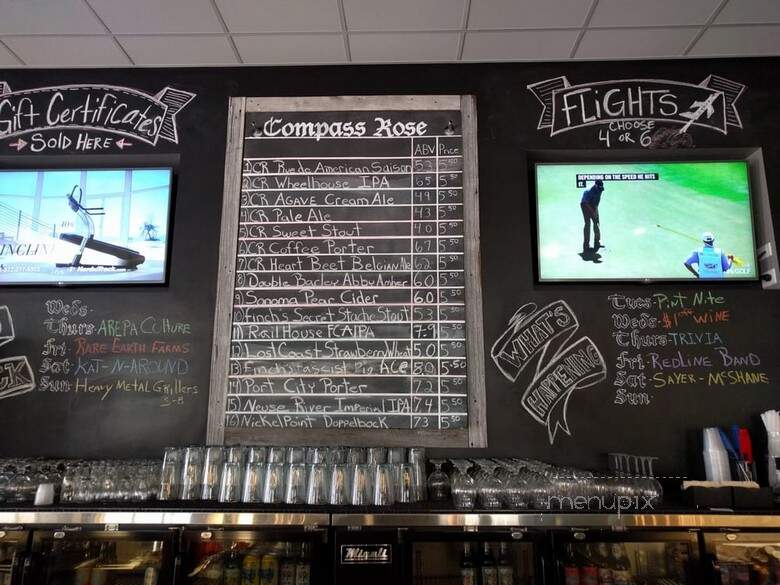 Gift Certificates
SOLD HERE
Compass Rose
ABV Price
1) CR Rue de American Saison 5.2 5.50
2) CR Wheelhouse IPA 6.5 5.50
3) CR AGAVE Cream Ale 4.9 5.50
4) CR Pale Ale 4.3 5.50
5) CR Sweet Stout 4.0 5.50
6) CR Coffee Porter 6.7 5.50
7) CR Heart Beet Belgian Ale 6.2 5.50
8) Double Barley Abby Amber 6.0 5.50
9) Sonoma Pear Cider 6.0 5.50
10) Finch's Secret Stache Stout 5.3 5.50
11) Rail House FCAIPA 7.9 5.50
12) Lost Coast Strawberry Wheat 5.0 5.50
13) Finch's Fascist Pig ACE 8.0 5.50
14) Port City Porter 7.2 5.50
15) Neuse River Imperial IPA 7.4 5.50
16) Nickel Point Doppelbock 7.3 5.50
FLiGHTS
CHOOSE
4 OR 6
DEPENDING ON THE SPEED HE HITS
IT.
GOLF
INCLIN
NordicTrack
Weds-
Thurs- AREPA Culture
Fri- RARE EARTH FARMS
Sat- KAT-N-AROUND
Sun- Heavy Metal Grillers
3-8
WHAT'S
HAPPENING
Tues- Pint Nite
Weds- WINE
Thurs- TRIVIA
Fri- REDLINE BAND
Sat- SAYER-McSHANE
Sun-
Migali
menupix